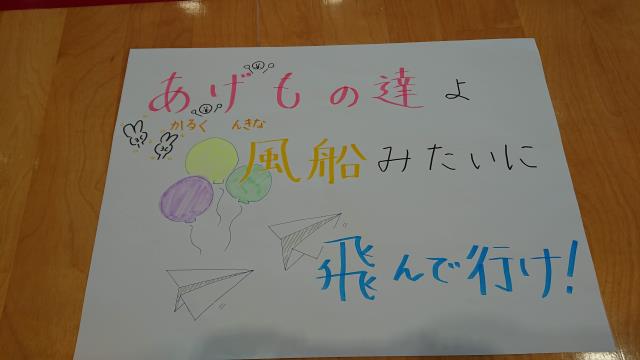 あげもの達よ
かるく んきな
風船みたいに
飛んで行け!